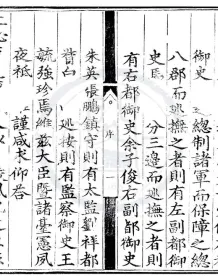 御史　總制諸軍而保障之總
八郡而巡撫之者則有左副都御
史馬　分三邊而巡撫之者則
有右都御史余子俊右副都御史
序
朱英張鵬鎮守則有太監劉祥都
督白　巡按則有監察御史王
毓強珍焉維茲大臣曁諸臺憲夙
夜祗　謹咸求仰荅